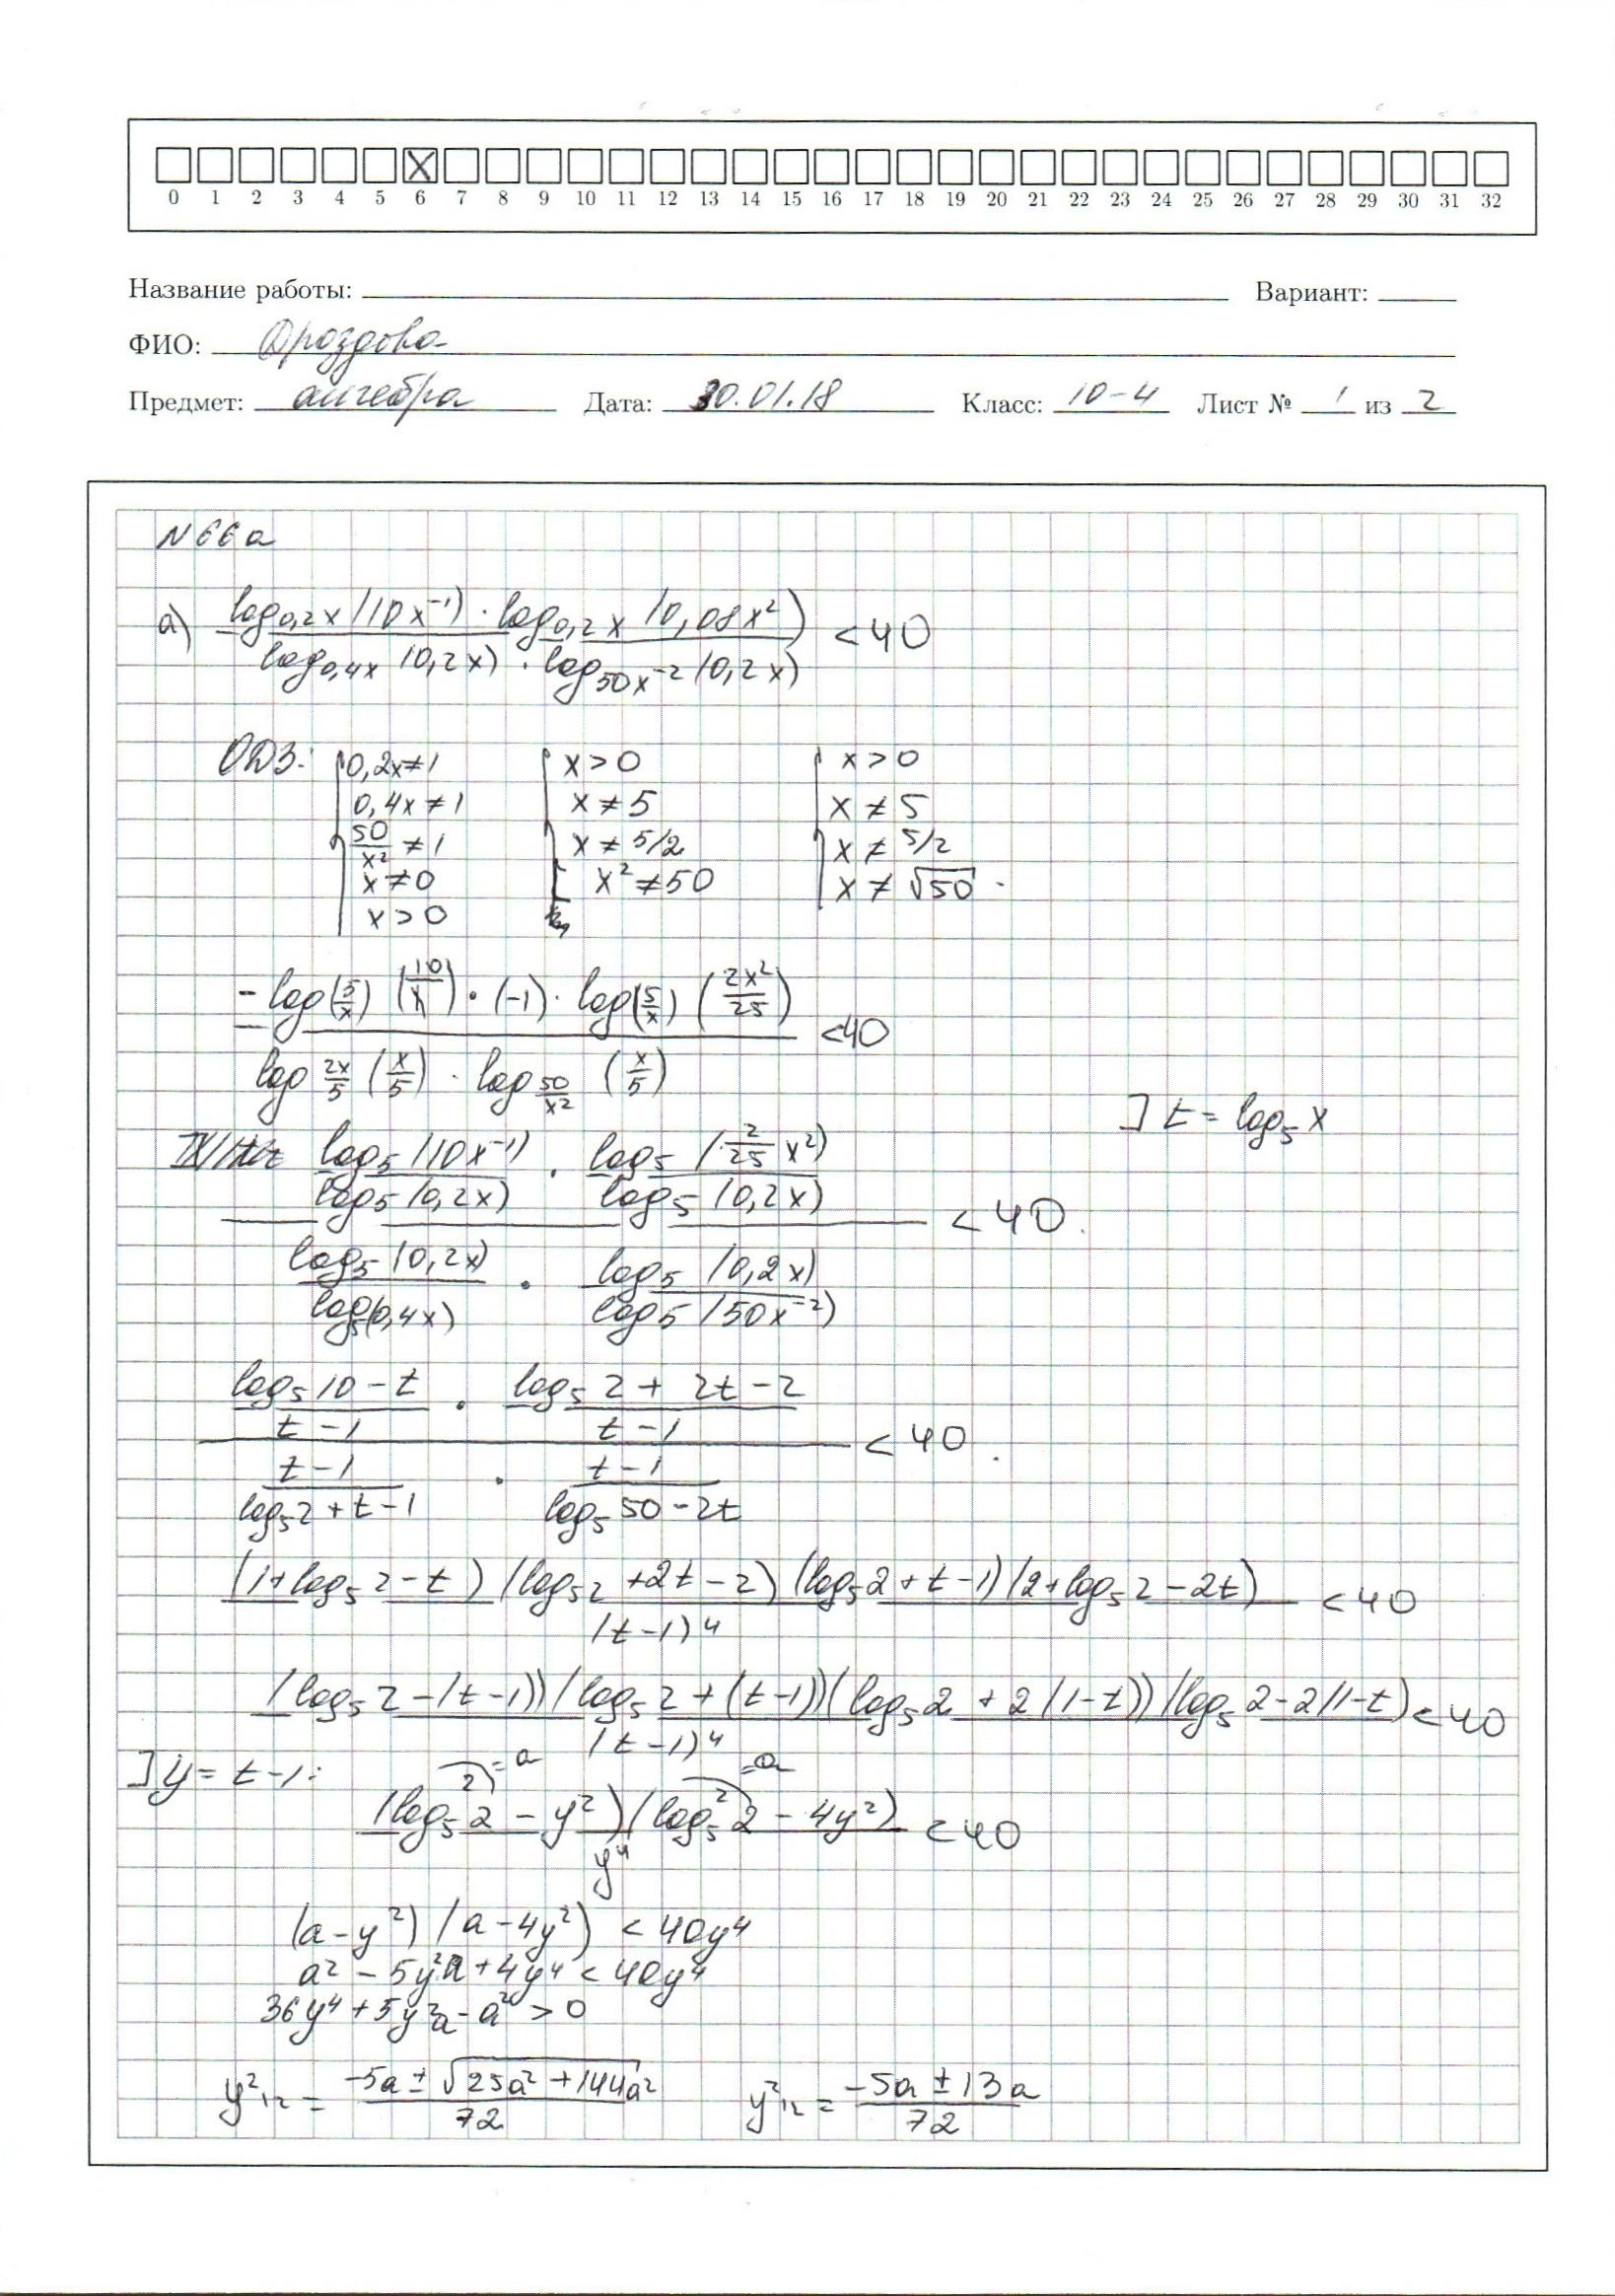 X
0 1 2 3 4 5 6 7 8 9 10 11 12 13 14 15 16 17 18 19 20 21 22 23 24 25 26 27 28 29 30 31 32
Название работы: Вариант:
ФИО: Дроздова
Предмет: алгебра Дата: 30.01.18 Класс: 10-4 Лист № 1 из 2
N66a
а) (log_{0,2x}(10x^{-1}) · log_{0,2x}(0,08x²)) / (log_{0,4x}(0,2x) · log_{50x^{-2}}(0,2x)) < 40
ОДЗ: 0,2x≠1 x>0 x>0
0,4x≠1 x≠5 x≠5
50/x² ≠1 x≠5/2 x≠5/2
x≠0 x²≠50 x≠√50.
x>0
(-log_{(5/x)}(10/x) · (-1) · log_{(5/x)}(2x²/25)) / (log_{2x/5}(x/5) · log_{50/x²}(x/5)) <40
] t = log₅x
(log₅(10x^{-1}) / log₅(0,2x) · log₅(2/25 x²) / log₅(0,2x)) / (log₅(0,2x) / log₅(0,4x) · log₅(0,2x) / log₅(50x^{-2})) < 40.
((log₅10-t)/(t-1) · (log₅2+2t-2)/(t-1)) / ((t-1)/(log₅2+t-1) · (t-1)/(log₅50-2t)) < 40.
(1+log₅2-t)(log₅2+2t-2)(log₅2+t-1)(2+log₅2-2t) / (t-1)⁴ < 40
(log₅2-(t-1))(log₅2+(t-1))(log₅2+2(1-t))(log₅2-2(1-t) / (t-1)⁴ < 40
] y = t-1: =a =a
(log₅²2-y²)(log₅²2-4y²) / y⁴ < 40
(a-y²)(a-4y²) < 40y⁴
a²-5y²a+4y⁴<40y⁴
36y⁴+5y²a-a²>0
y²₁₂ = (-5a±√(25a²+144a²))/72 y²₁₂ = (-5a±13a)/72